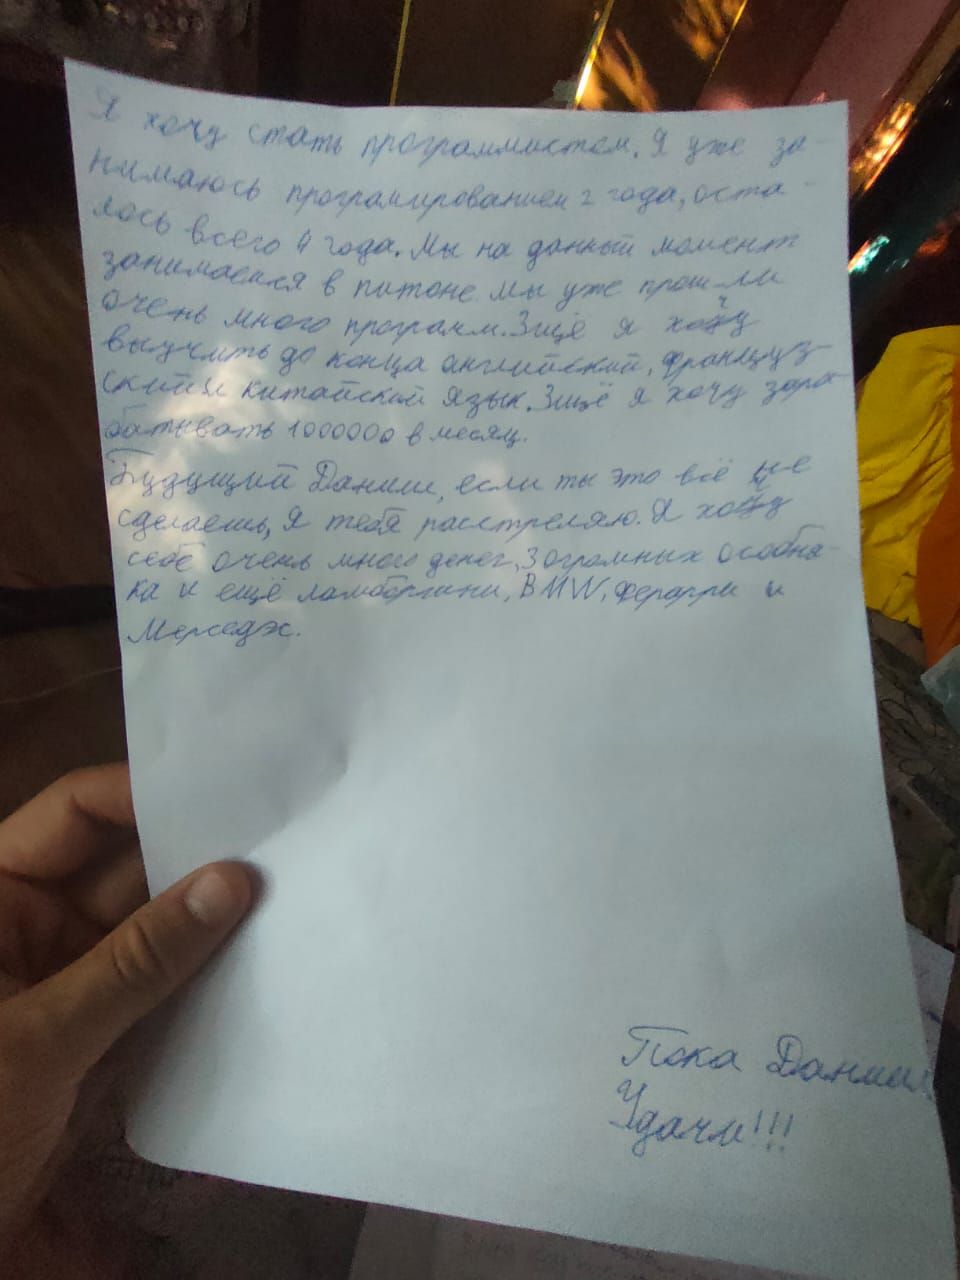 Я хочу стать программистом. Я уже за-
нимаюсь програмированием 2 года, оста-
лось всего 4 года. Мы на данный момент
занимаемся в питоне мы уже прошли
очень много программ. Эщё я хочу
выучить до конца английский, француз-
ский и китайский язык. Эщё я хочу зара-
батывать 1000000 в месяц.
Будущий Данил, если ты это всё не
сделаешь, я тебя расстреляю. Я хочу
себе очень много денег, 3 огромных особня-
ка и ещё ламборгини, BMW, ферарри и
Мерседэс.
Пока Данил
Удачи!!!